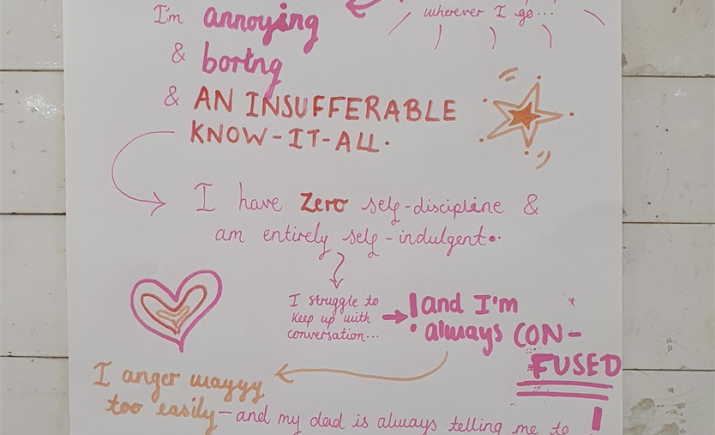 wherever I go...
I'm annoying
& boring
& AN INSUFFERABLE
KNOW-IT-ALL.
I have zero self-discipline &
am entirely self-indulgent.
I struggle to
keep up with
conversation...
and I'm
always CON-
FUSED!
I anger wayyy
too easily—and my dad is always telling me to